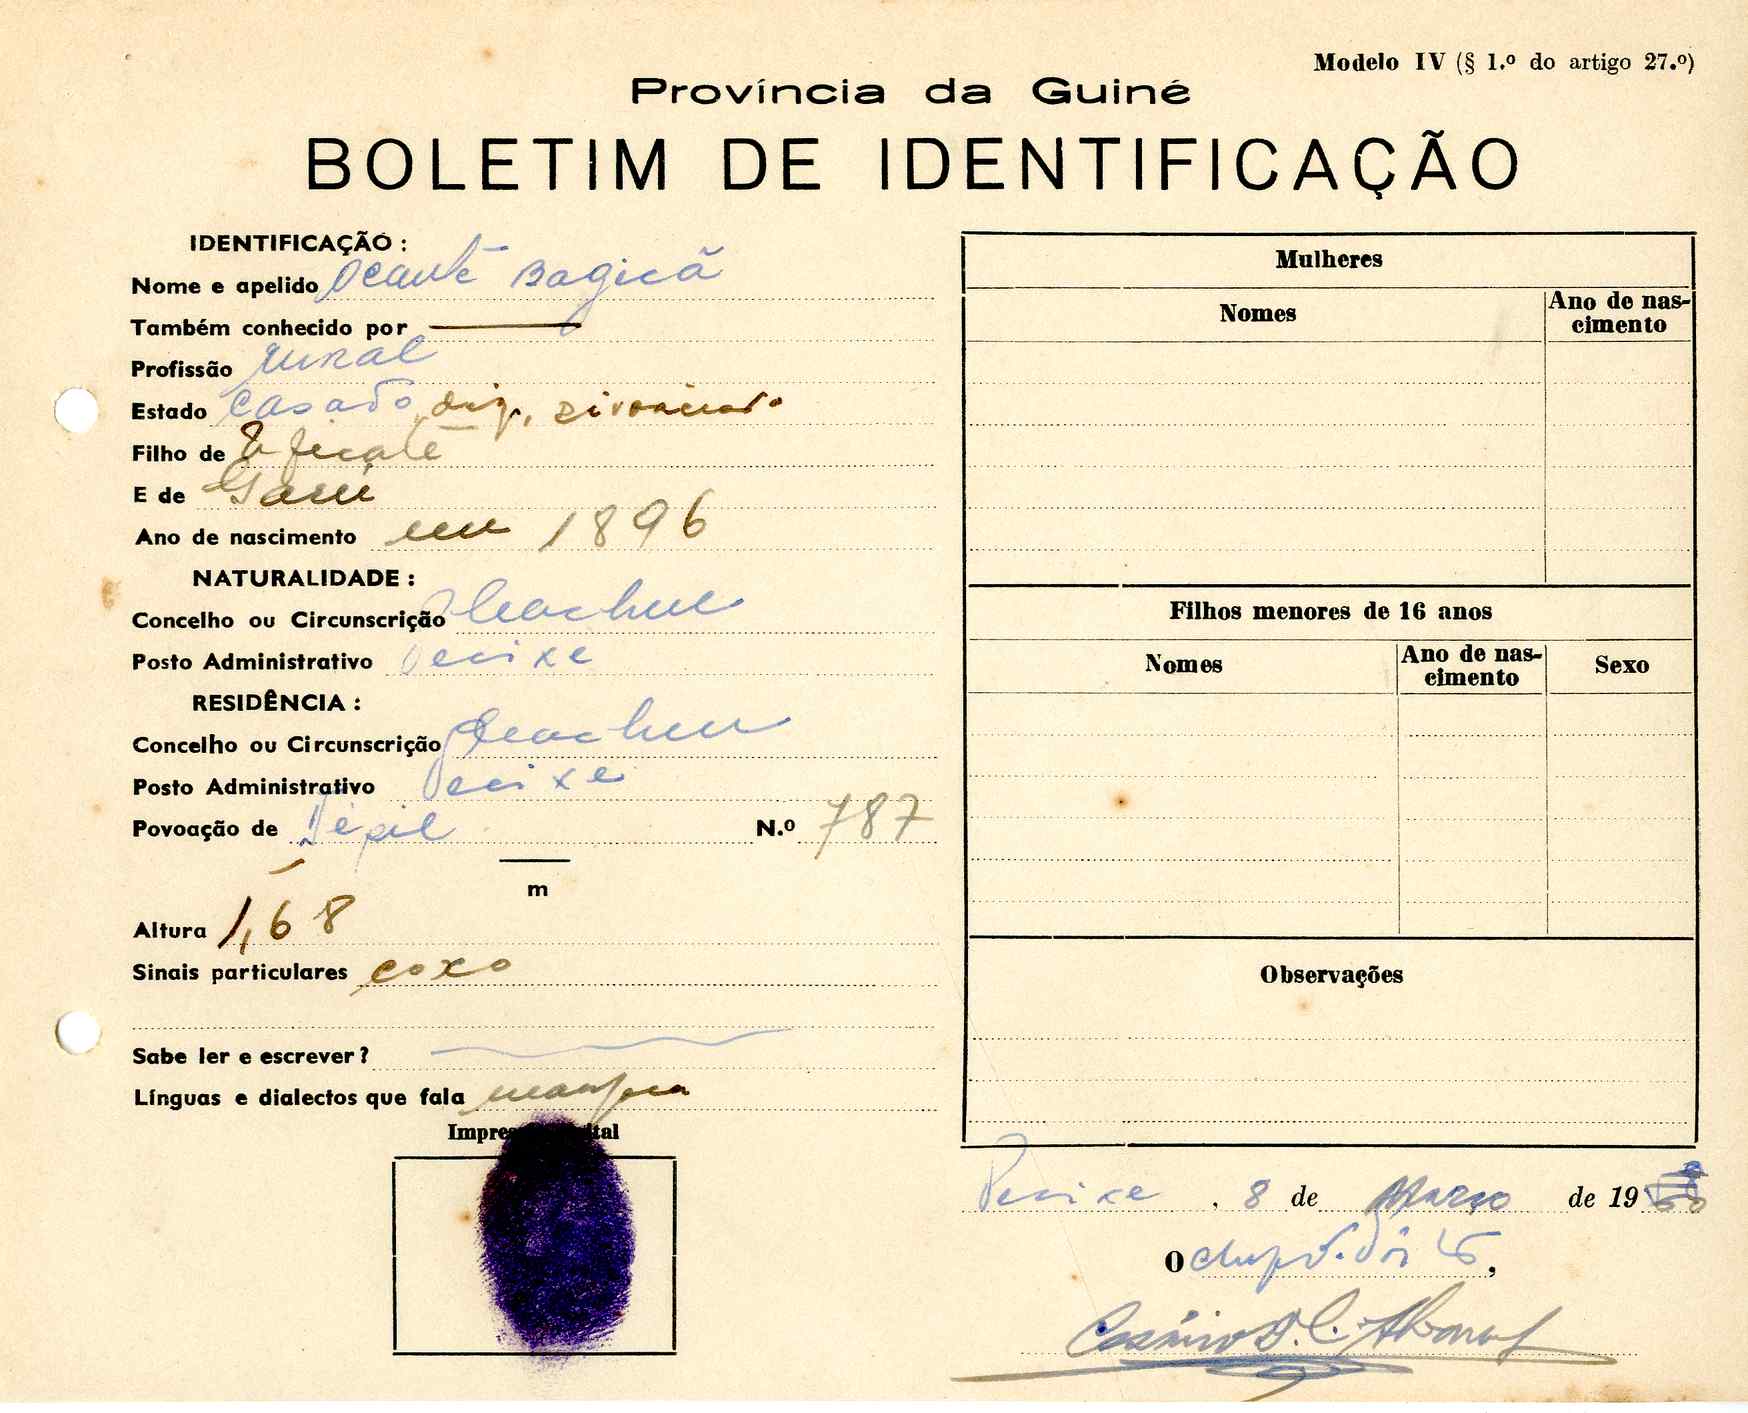 Modelo IV (§ 1.º do artigo 27.º)
Província da Guiné
BOLETIM DE IDENTIFICAÇÃO
IDENTIFICAÇÃO :
Nome e apelido Ocantê Bagicã
Também conhecido por ———
Profissão rural
Estado Casado, digo, divorciado
Filho de
E de Garú
Ano de nascimento em 1896
NATURALIDADE :
Concelho ou Circunscrição Cacheu
Posto Administrativo Pecixe
RESIDÊNCIA :
Concelho ou Circunscrição Cacheu
Posto Administrativo Pecixe
Povoação de N.º 787
m
Altura 1,68
Sinais particulares coxo
Sabe ler e escrever?
Línguas e dialectos que fala
Impressão digital
Mulheres
Nomes
Ano de nas-
cimento
Filhos menores de 16 anos
Nomes
Ano de nas-
cimento
Sexo
Observações
Pecixe, 8 de Março de 19
O